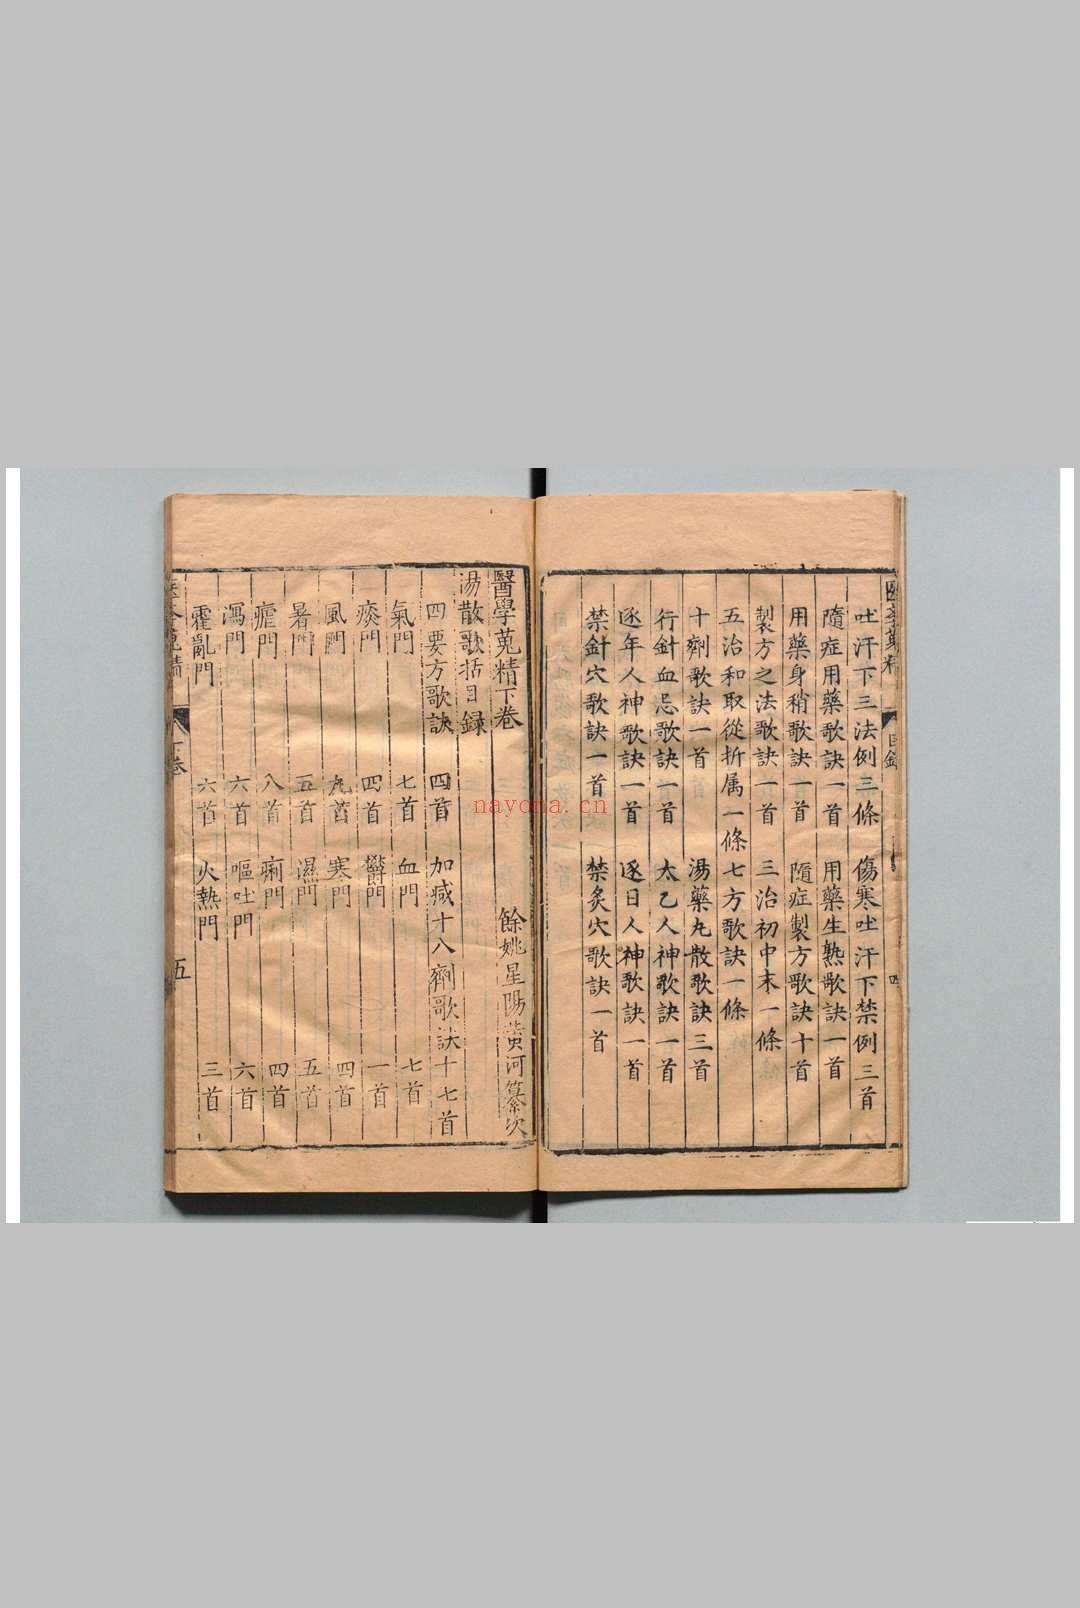 吐汗下三法例三條 傷寒吐汗下禁例三首
隨症用藥歌訣一首 用藥生熟歌訣一首
用藥身稍歌訣一首 隨症製方歌訣十首
製方之法歌訣一首 三治初中末一條
五治和取從折属一條 七方歌訣一條
十劑歌訣一首 湯藥丸散歌訣三首
行針血忌歌訣一首 太乙人神歌訣一首
逐年人神歌訣一首 逐日人神歌訣一首
禁針穴歌訣一首 禁炙穴歌訣一首
目錄
醫學蒐精下卷 餘姚星陽黄河纂次
湯散歌括目録
四要方歌訣 四首 加减十八劑歌訣十七首
氣門 七首 血門 七首
痰門 四首 欝門 一首
風門 九首 寒門 四首
暑門 五首 濕門 五首
瘧門 八首 痢門 四首
瀉門 六首 嘔吐門 六首
霍亂門 六首 火熱門 三首
卷 五
nayona.cn